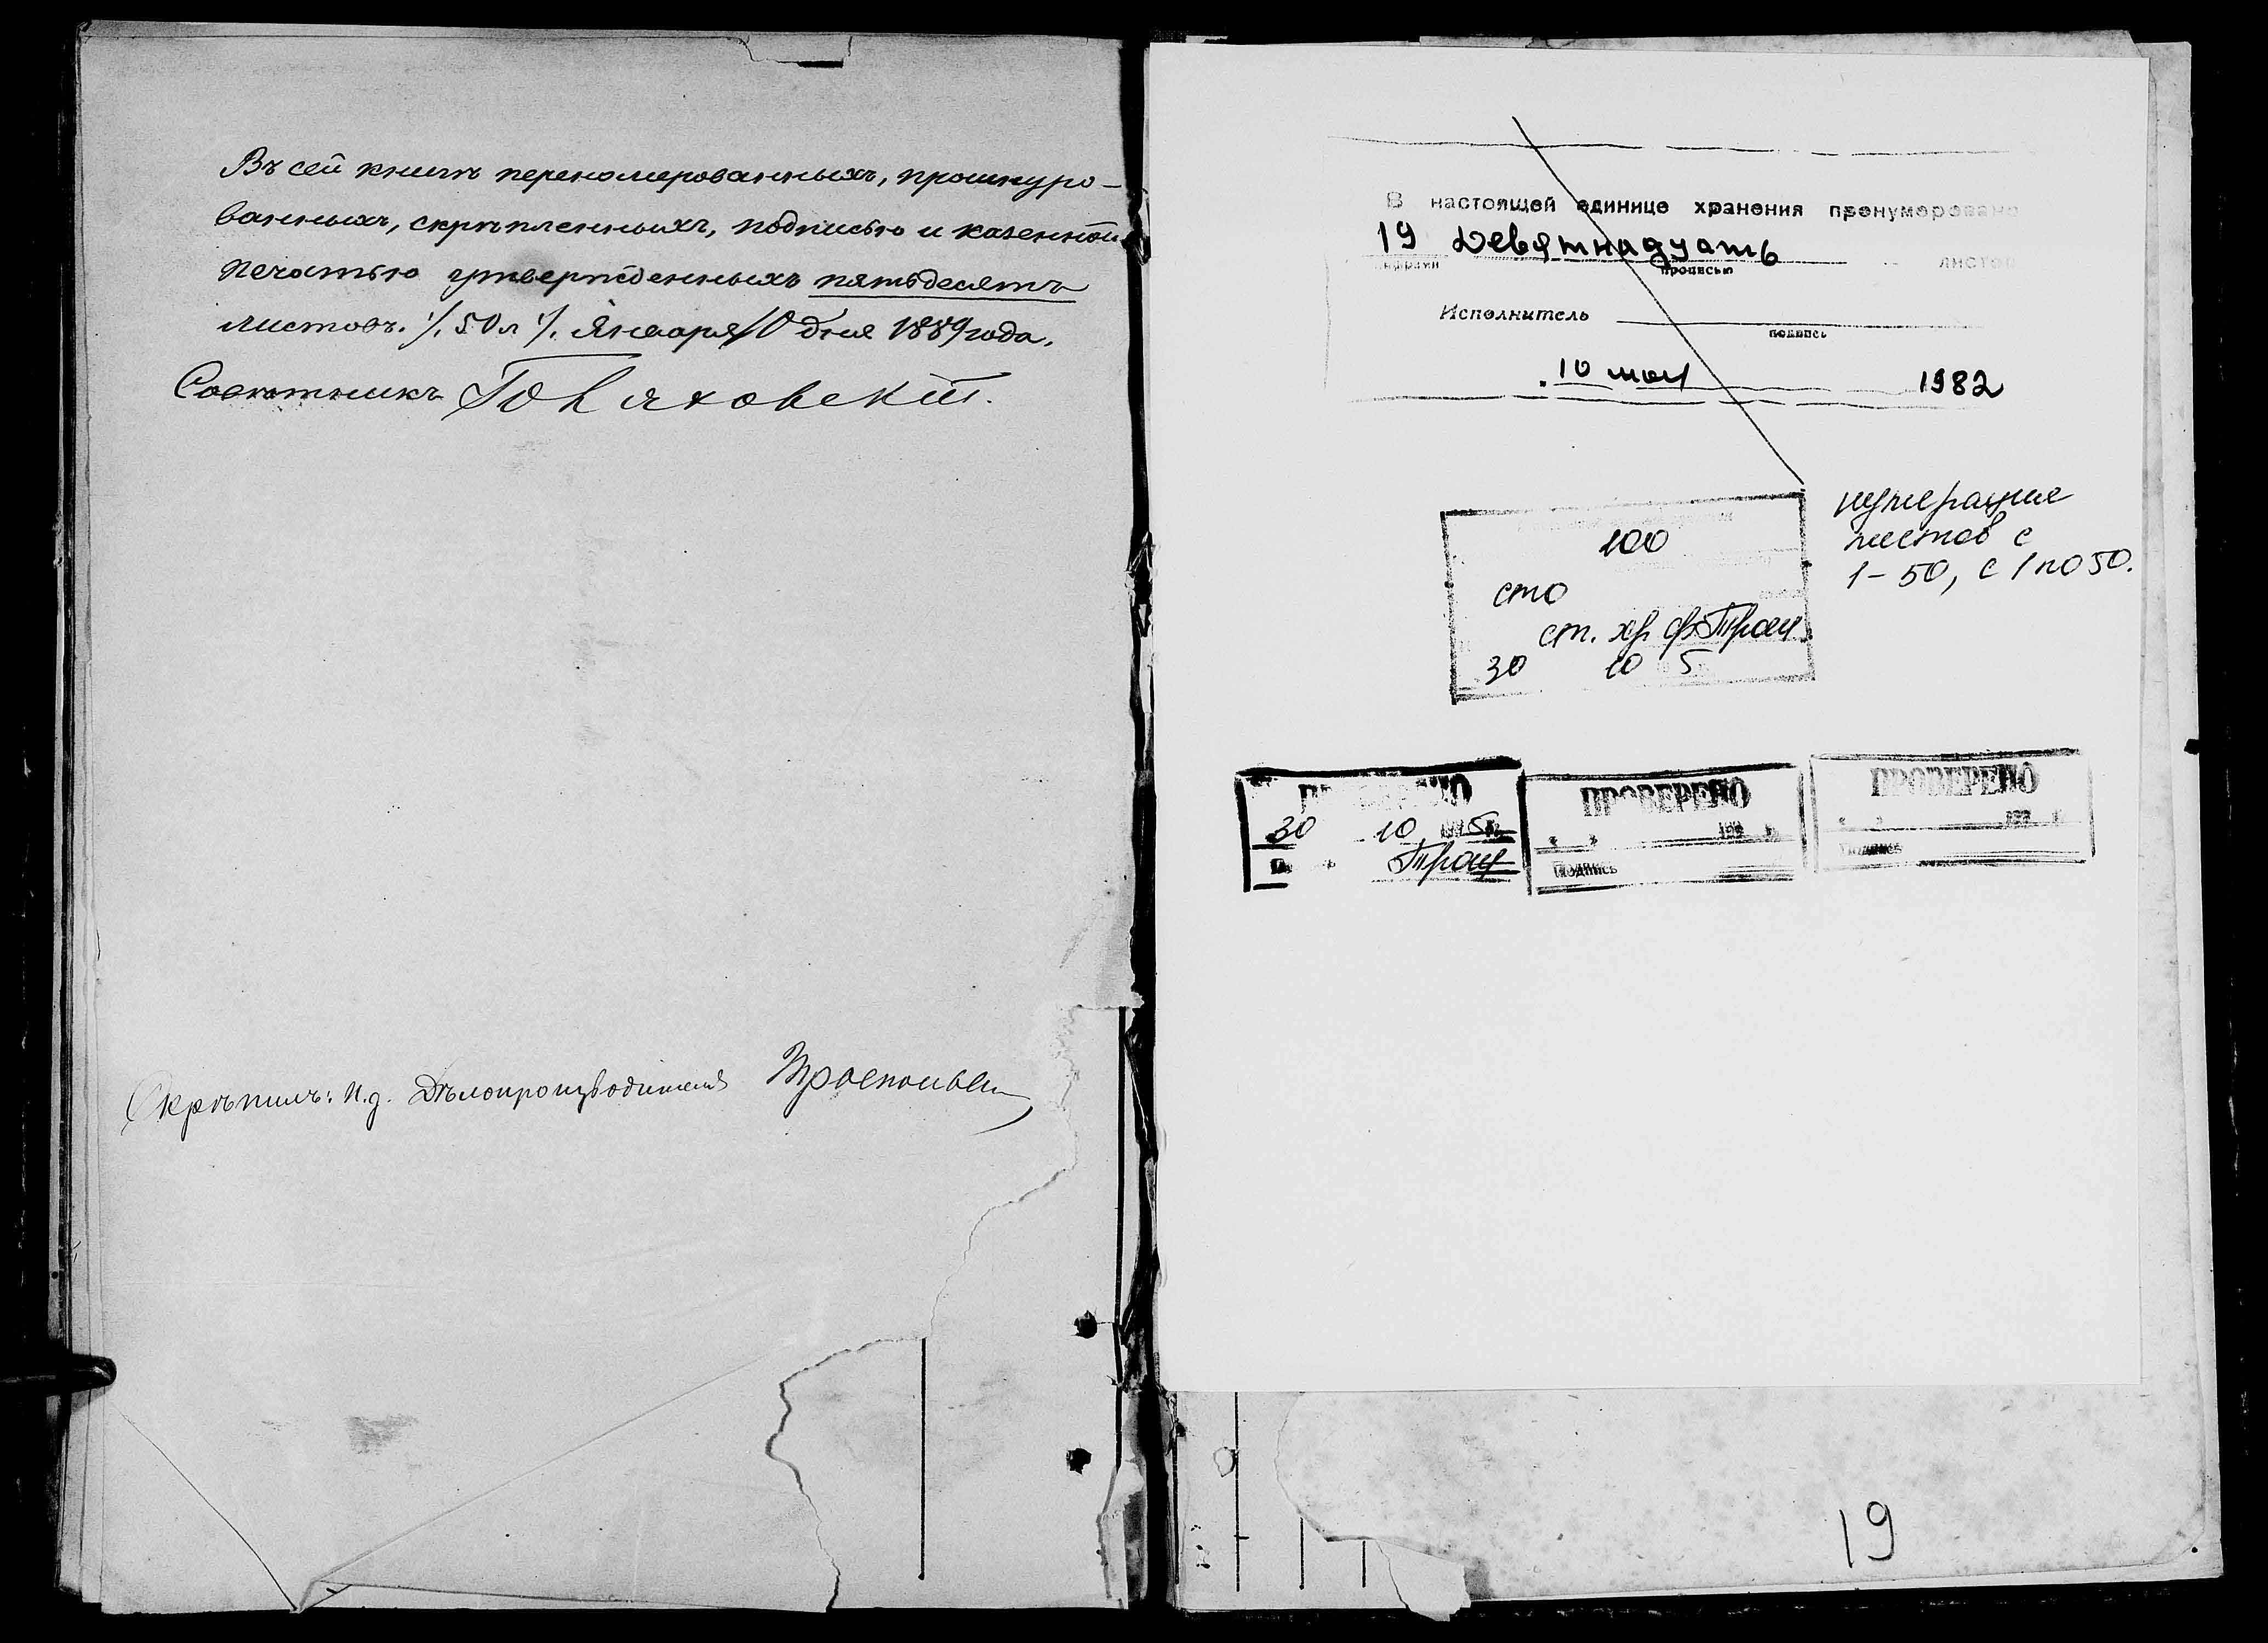 Въ сей книгѣ перенумерованныхъ, прошнуро-
ванныхъ, скрѣпленныхъ, подписью и казенной
печатью утвержденныхъ пятьдесятъ
листовъ. /. 50 л /. Января 10 дня 1889 года.
Совѣтникъ
Скрѣпилъ: И.д. Дѣлопроизводителя
В настоящей единице хранения пронумеровано
19 девятнадцать листов
прописью
Исполнитель
подпись
10 мая 1982
100
сто
ст. хр. ф. Трощ
30 10 5
нумерация
листов с
1-50, с 1 по 50.
ПРОВЕРЕНО
30 10 1995
Трощ
ПРОВЕРЕНО
" " 199 г.
Подпись
ПРОВЕРЕНО
" " 199 г.
Подпись
19